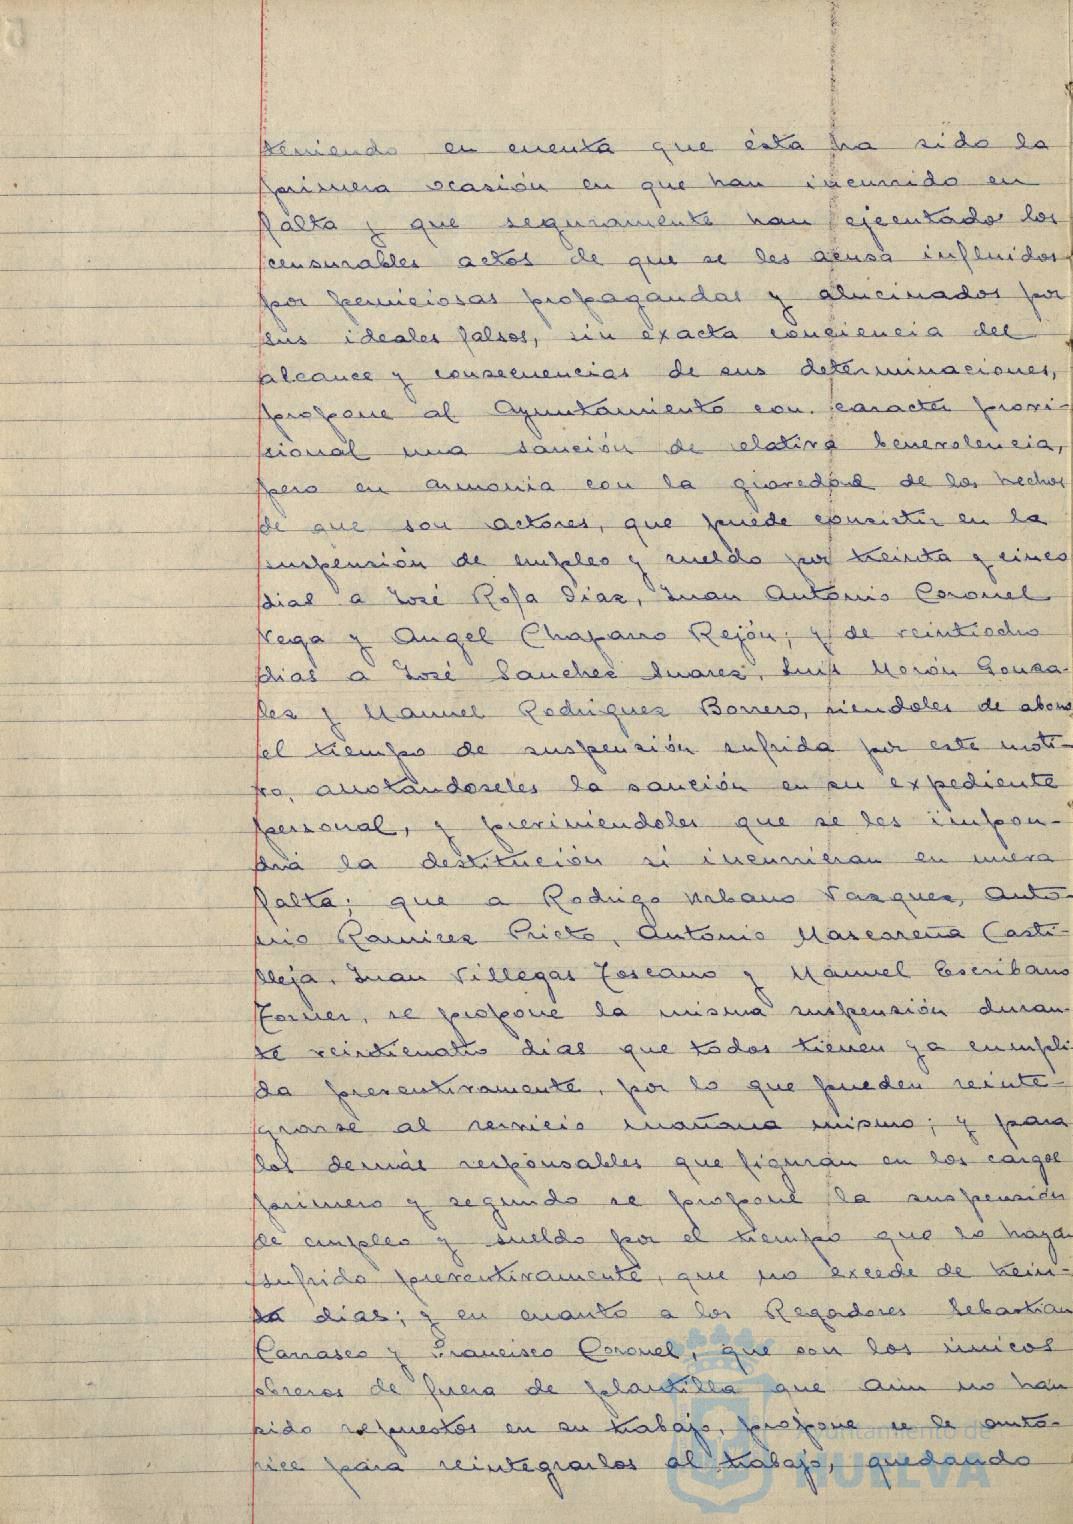 teniendo en cuenta que ésta ha sido la
primera ocasión en que han incurrido en
falta y que seguramente han ejecutado los
censurables actos de que se les acusa influidos
por perniciosas propagandas y alucinados por
sus ideales falsos, sin exacta conciencia del
alcance y consecuencias de sus determinaciones,
propone al Ayuntamiento con caracter provi-
sional una sanción de relativa benevolencia,
pero en armonia con la gravedad de los hechos
de que son actores, que puede consistir en la
suspensión de empleo y sueldo por treinta y cinco
dias a José Rofa Díaz, Juan Antonio Coronel
Vega y Angel Chaparro Rejón; y de veintiocho
dias a José Sanchez Suarez, Luis Morón Gonza-
lez y Manuel Rodriguez Borrero, siendoles de abono
el tiempo de suspensión sufrida por este moti-
vo, anotándoseles la sanción en su expediente
personal, y previniendoles que se les impon-
drá la destitución si incurrieran en nueva
falta; que a Rodrigo Urbano Vazquez, Anto-
nio Ramirez Prieto, Antonio Mascareña Casti-
lleja, Juan Villegas Toscano y Manuel Escribano
Forner, se propone la misma suspensión duran-
te veinticuatro dias que todos tienen ya cumpli-
da preventivamente, por lo que pueden reinte-
grarse al servicio mañana mismo; y para
los demás responsables que figuran en los cargos
primero y segundo se propone la suspensión
de empleo y sueldo por el tiempo que lo hayan
sufrido preventivamente, que no excede de trein-
ta dias; y en cuanto a los Regadores Sebastian
Carrasco y Francisco Coronel, que son los únicos
obreros de fuera de plantilla que aún no han
sido repuestos en su trabajo, propone se le auto-
rice para reintegrarlos al trabajo, quedando
Ayuntamiento de
HUELVA